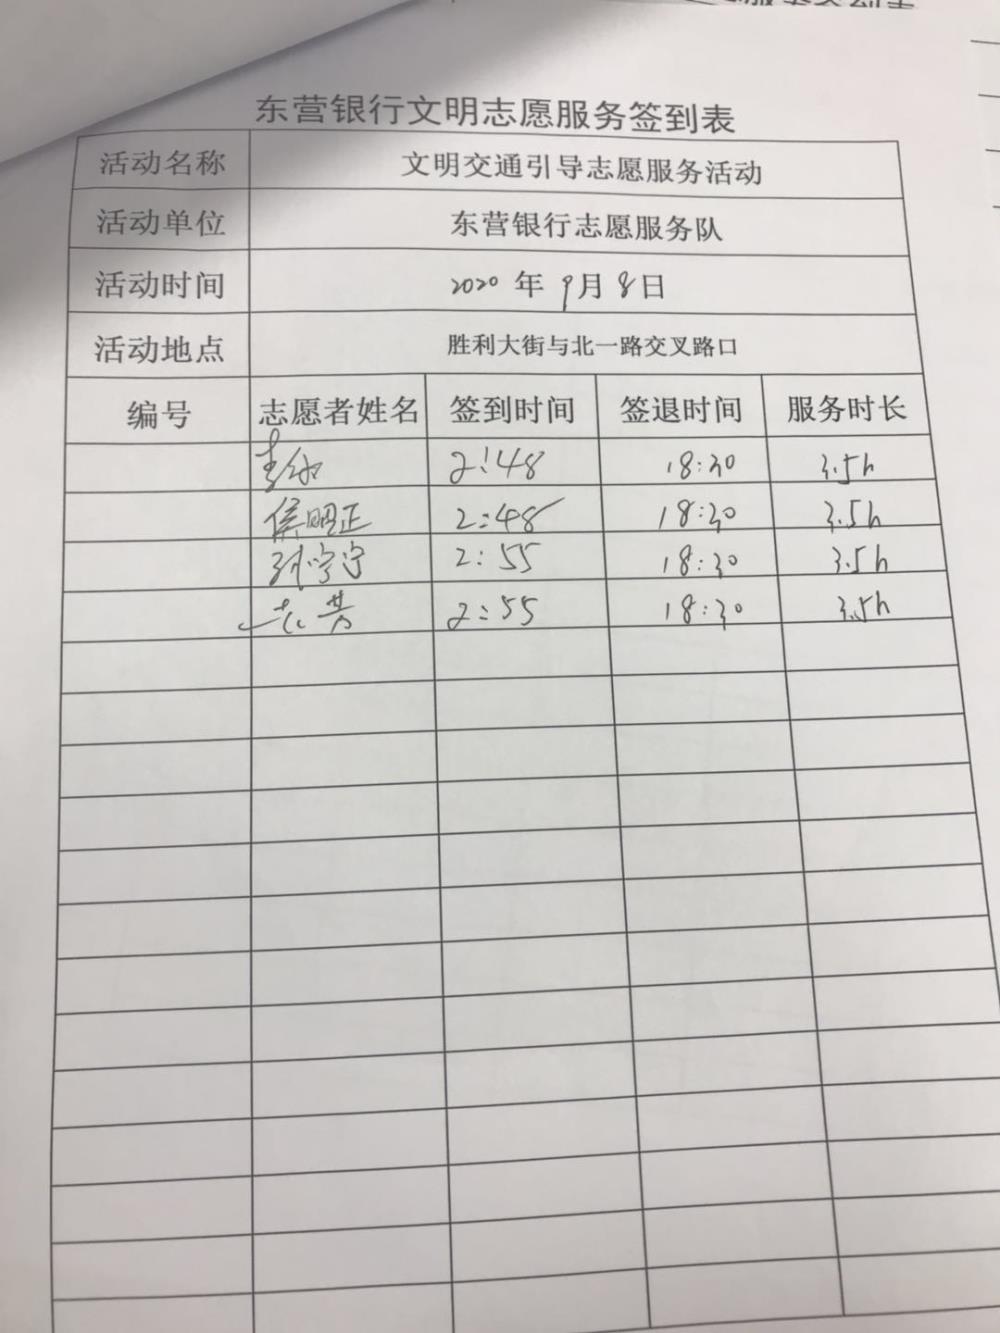 东营银行文明志愿服务签到表
活动名称 文明交通引导志愿服务活动
活动单位 东营银行志愿服务队
活动时间 2020 年 9月 8日
活动地点 胜利大街与北一路交叉路口
编号 志愿者姓名 签到时间 签退时间 服务时长
2:48 18:30 3.5h
侯明正 2:48 18:30 3.5h
孙宁宁 2:55 18:30 3.5h
2:55 18:30 3.5h